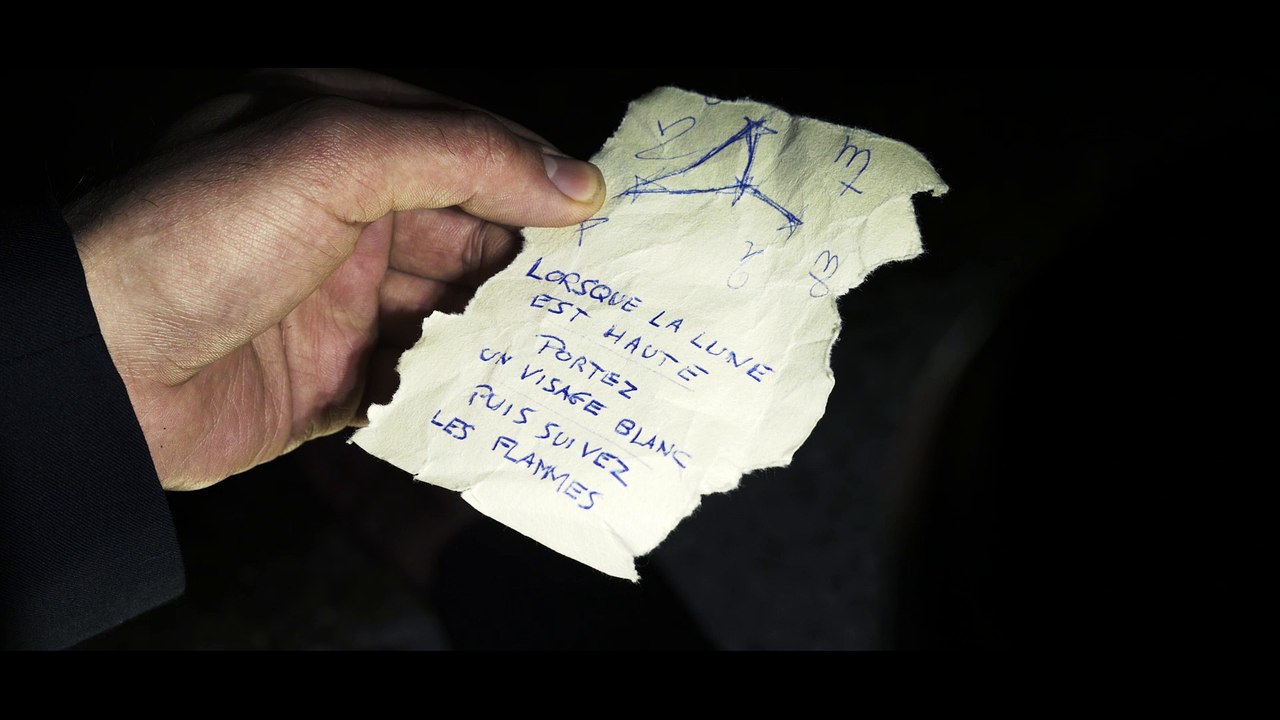 LORSQUE LA LUNE
EST HAUTE
PORTEZ
UN VISAGE BLANC
PUIS SUIVEZ
LES FLAMMES